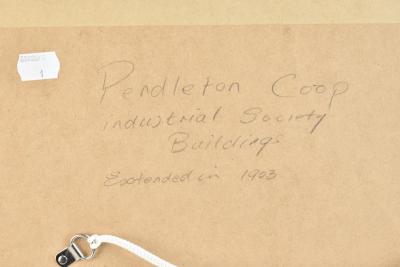 1
Pendleton Coop
industrial Society
Buildings
Extended in 1903